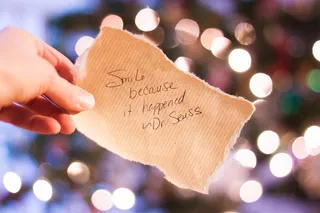 Smile
because
it happened
~Dr Seuss